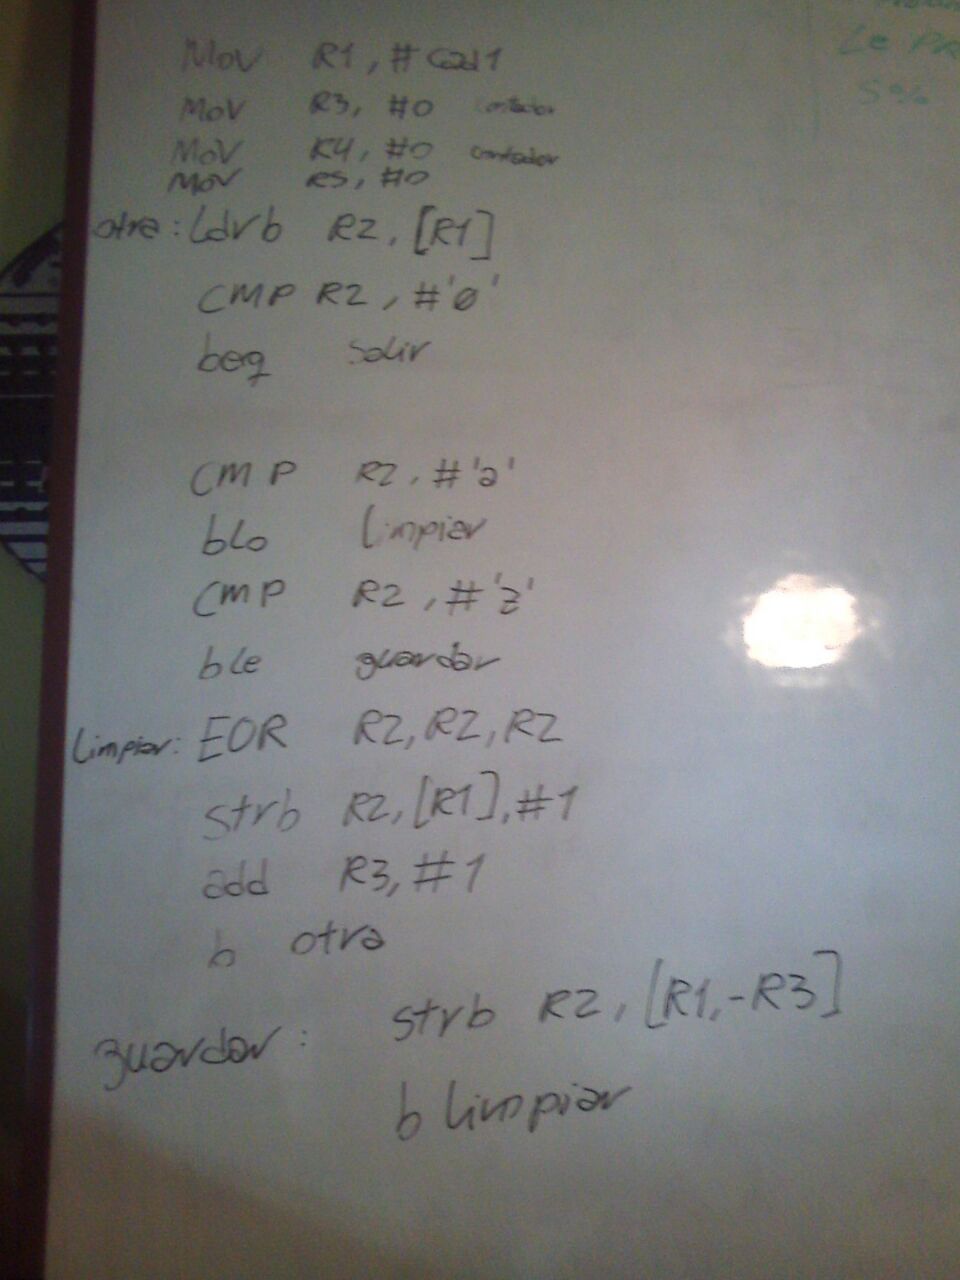 Mov R1, #cad1
Mov R3, #0 contador
Mov R4, #0 contador
Mov R5, #0
otra: Ldrb R2, [R1]
CMP R2, #'0'
beq salir
CMP R2, #'a'
blo limpiar
CMP R2, #'z'
ble guardar
limpiar: EOR R2, R2, R2
strb R2, [R1], #1
add R3, #1
b otra
guardar: strb R2, [R1, -R3]
b limpiar
Le
5%